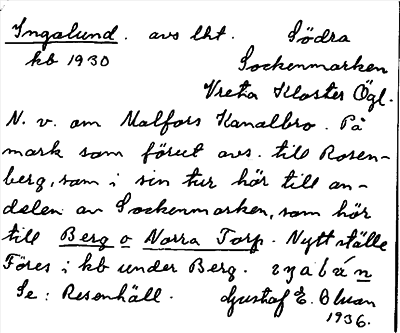 Ingalund. avs lht. Södra
kb 1930 Sockenmarken
Vreta Kloster Ögl.
N. v. om Malfors Kanalbro. På
mark som förut avs. till Rosen-
berg, som i sin tur hör till an-
delen av Sockenmarken, som hör
till Berg o Norra Torp. Nytt ställe
Föres i kb under Berg.
Se: Rosenhäll. Gustaf E. Bluan
1936.